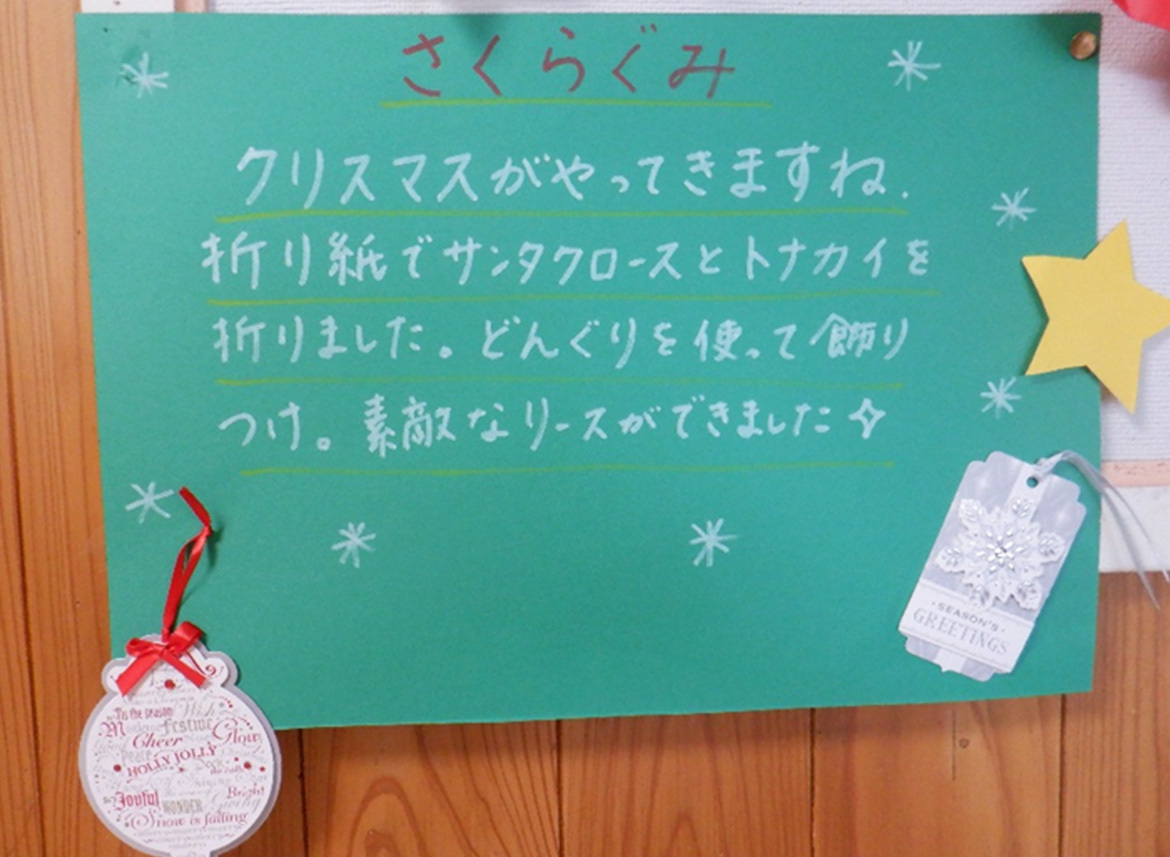 さくらぐみ
クリスマスがやってきますね.
折り紙でサンタクロースとトナカイを
折りました。どんぐりを使って飾り
つけ。素敵なリースができました✧
·SEASON'S·
GREETINGS
'Tis the season
Wish
festive
Glow
Cheer
Peace
HOLLY JOLLY
Joyful
WONDER
Bright
Snow is falling